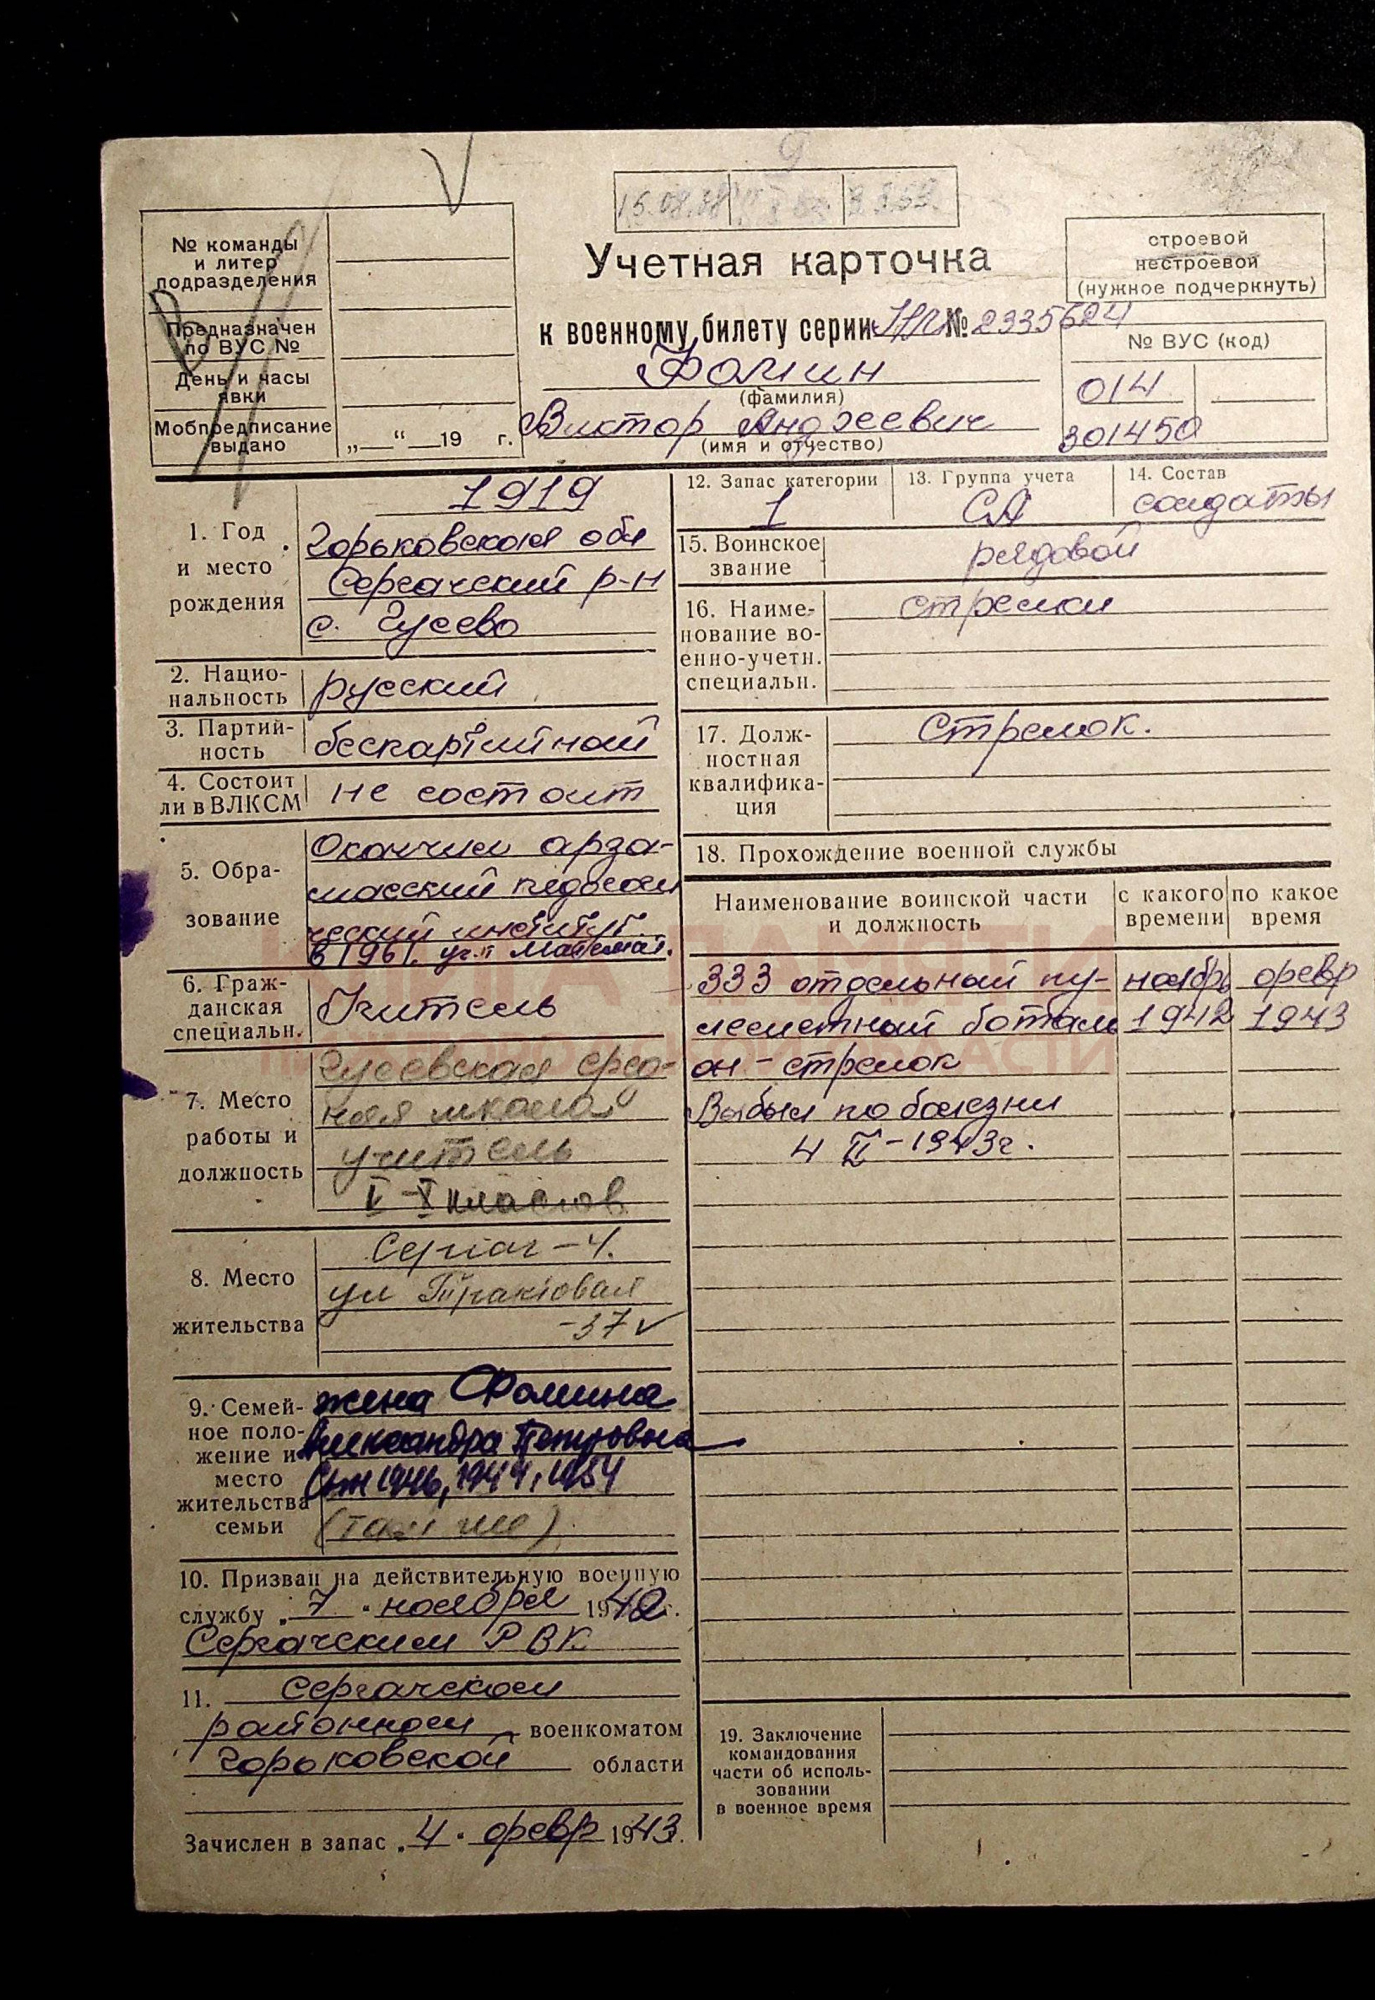 9
15.08.08
№ команды
и литер
подразделения
Предназначен
по ВУС №
День и часы
явки
Мобпредписание
выдано „ “ 19 г.
Учетная карточка
к военному билету серии НП № 2335624
Фомин
(фамилия)
Виктор Андреевич
(имя и отчество)
строевой
нестроевой
(нужное подчеркнуть)
№ ВУС (код)
014
301450
1. Год
и место
рождения
1919
Горьковская обл
Сергачский р-н
с. Гусево
2. Нацио-
нальность
русский
3. Партий-
ность
беспартийный
4. Состоит
ли в ВЛКСМ
не состоит
5. Обра-
зование
Окончил арза-
масский педагоги
ческий институт
в 1961. уч. Математ.
6. Граж-
данская
специальн.
Учитель
7. Место
работы и
должность
Гусевская сред-
няя школа
учитель
V-X классов
8. Место
жительства
Сергач-4.
ул Трактовая
-37 v
9. Семей-
ное поло-
жение и
место
жительства
семьи
жена Фомина
Александра Петровна
(там же)
10. Призван на действительную военную
службу „ 7 “ ноября 1942 г.
Сергачским РВК
11. Сергачском
районном военкоматом
Горьковской области
Зачислен в запас „ 4 “ февр 1943.
12. Запас категории
1
13. Группа учета
СА
14. Состав
солдаты
15. Воинское
звание
рядовой
16. Наиме-
нование во-
енно-учетн.
специальн.
стрелки
17. Долж-
ностная
квалифика-
ция
Стрелок.
18. Прохождение военной службы
Наименование воинской части
и должность
с какого
времени
по какое
время
333 отдельный пу- ноябрь февр
леметный батальон 1942 1943
он - стрелок
Выбыл по болезни
4 II-1943г.
19. Заключение
командования
части об исполь-
зовании
в военное время
КНИГА ПАМЯТИ
НИЖЕГОРОДСКОЙ ОБЛАСТИ